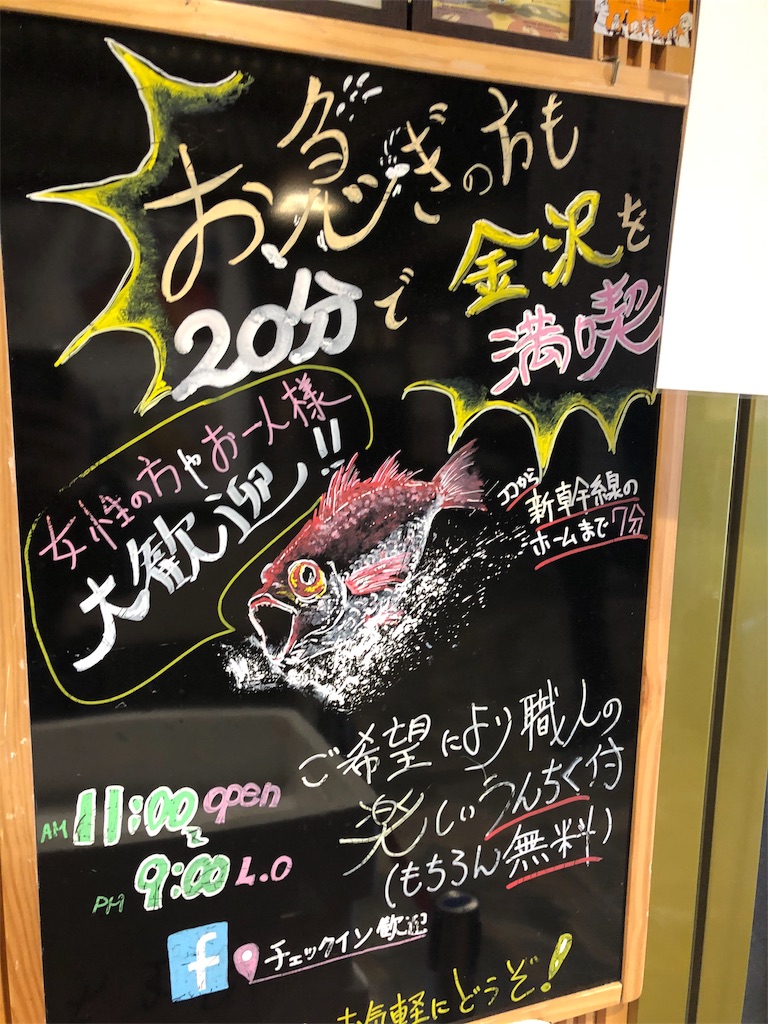 お急ぎの方も
20分で 金沢を
満喫
女性の方やお一人様
大歓迎!!
ココから
新幹線の
ホームまで7分
ご希望により職人の
楽しいうんちく付
(もちろん無料)
AM 11:00 open
PM 9:00 L.O
f チェックイン歓迎
お気軽にどうぞ!